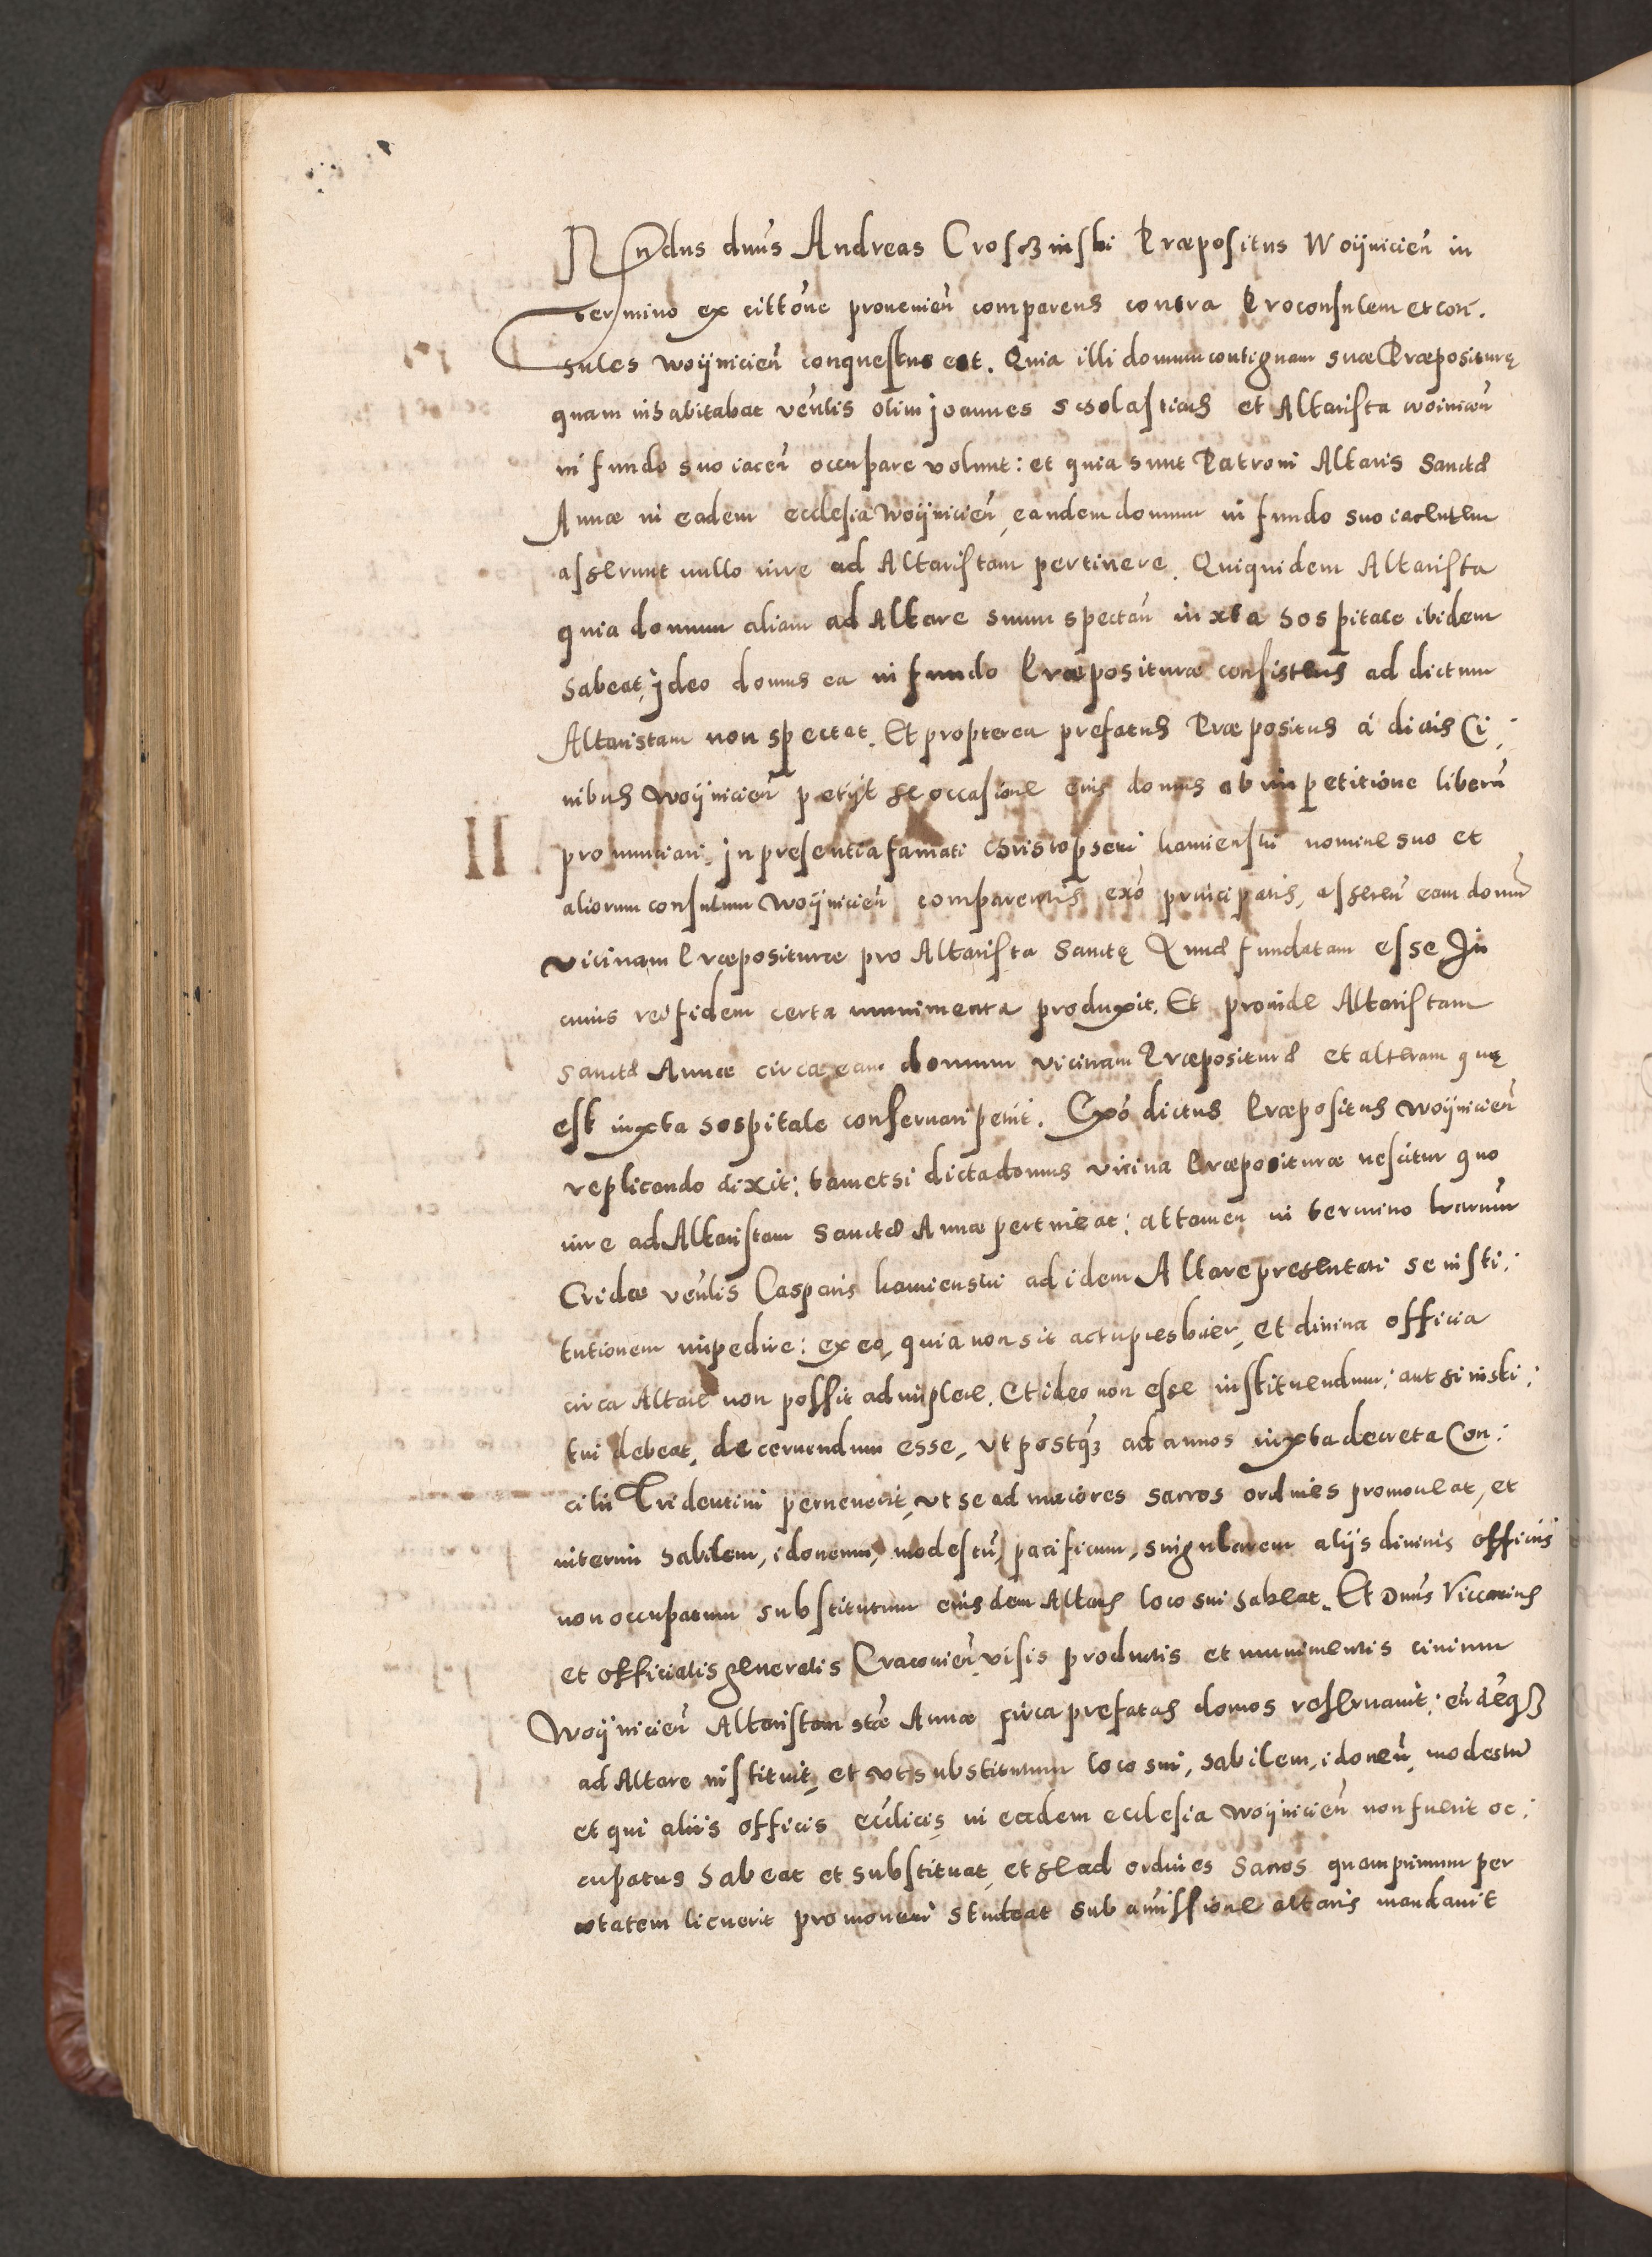 Rndus dnus Andreas Crosczinski Præpositus Woijnicien̄ in
termino ex cittōne prouenien̄ comparens contra Proconsulem et con.
sules woijnicien̄ conquestus est. Quia illi domum contiguam suæ Præposituræ
quam inhabitabat ven̄lis olim joannes scholasticus et Altarista woinicen̄
in fundo suo iacen̄ occupare volunt: et quia sunt Patroni Altaris Sanctæ
Annæ in eadem ecclesia Woijnicien̄, eandem domum in fundo suo iacentem
asserunt nullo iure ad Altaristam pertinere. Quiquidem Altarista
quia domum aliam ad Altare suum spectan̄ iuxta hospitale ibidem
habeat, jdeo domus ea in fundo Præposituræ consistens ad dictum
Altaristam non spectat. Et propterea prefatus Præpositus à dictis Ci:
uibus Woijnicien̄ petijt se occasione eius domus ab impetitione liberū
pronunciari. jn presentia famati Christopheri kamienski nomine suo et
II
aliorum consulum Woijnicien̄ comparentis exō principalis, asseren̄ eam domū
vicinam Præposituræ pro Altarista Sanctę Annæ fundatam esse. In
cuius rei fidem certa munimenta produxit. Et prouide Altaristam
Sanctæ Annæ circa eam domum vicinam Præposituræ et alteram quę
est iuxta hospitale conseruari petiit. Exō dictus Præpositus woijnicien̄
replicando dixit: tametsi dicta domus vicina Præposituræ nescitur quo
iure ad Altaristam Sanctæ Annæ pertineat: attamen in termino lrarum
Cridæ ven̄lis Casparis kamienski ad idem Altare presentati se insti:
tutionem impedire: ex eo, quia non sit actu presbiter, et diuina officia
circa Altare non possit adimplere. Et ideo non esse instituendum: aut si insti:
tui debeat, decernendum esse, vt postq̄ȝ ad annos iuxta decreta Con:
cilii Tridentini peruenerit, vt se ad maiores sacros ordines promoueat, et
interim habilem, idoneum, modestū, pacificum, singularem alijs diuinis officiis
non occupatum substitutum eiusdem Altaris loco sui habeat. Et Dnūs Viccarius
et officialis generalis Cracouien̄, visis productis et munimentis ciuium
Woijnicien̄ Altaristam stæ Annæ circa prefatas domos reseruauit: en̄deqȝ
ad Altare instituit, et vt substitutum loco sui, habilem, idoneū, modestū
et qui aliis officis ecc̄licis in eadem ecclesia woijnicien̄ non fuerit oc:
cupatus habeat et substituat, et se ad ordines sacros quamprimum per
ætatem licuerit promoueri studeat sub amissione altaris mandauit